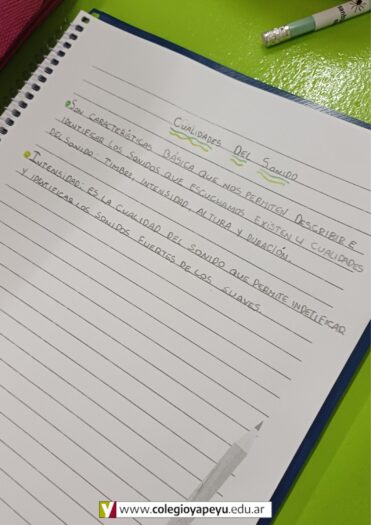 CUALIDADES DEL SONIDO
SON CARACTERÍSTICAS BÁSICA QUE NOS PERMITEN DESCRIBIR E
IDENTIFICAR LOS SONIDOS QUE ESCUCHAMOS EXISTEN 4 CUALIDADES
DEL SONIDO: TIMBRE, INTENSIDAD, ALTURA Y DURACIÓN.
INTENSIDAD: ES LA CUALIDAD DEL SONIDO QUE PERMITE INDETIFICAR
Y IDENTIFICAR LOS SONIDOS FUERTES DE LOS SUAVES.
www.colegioyapeyu.edu.ar